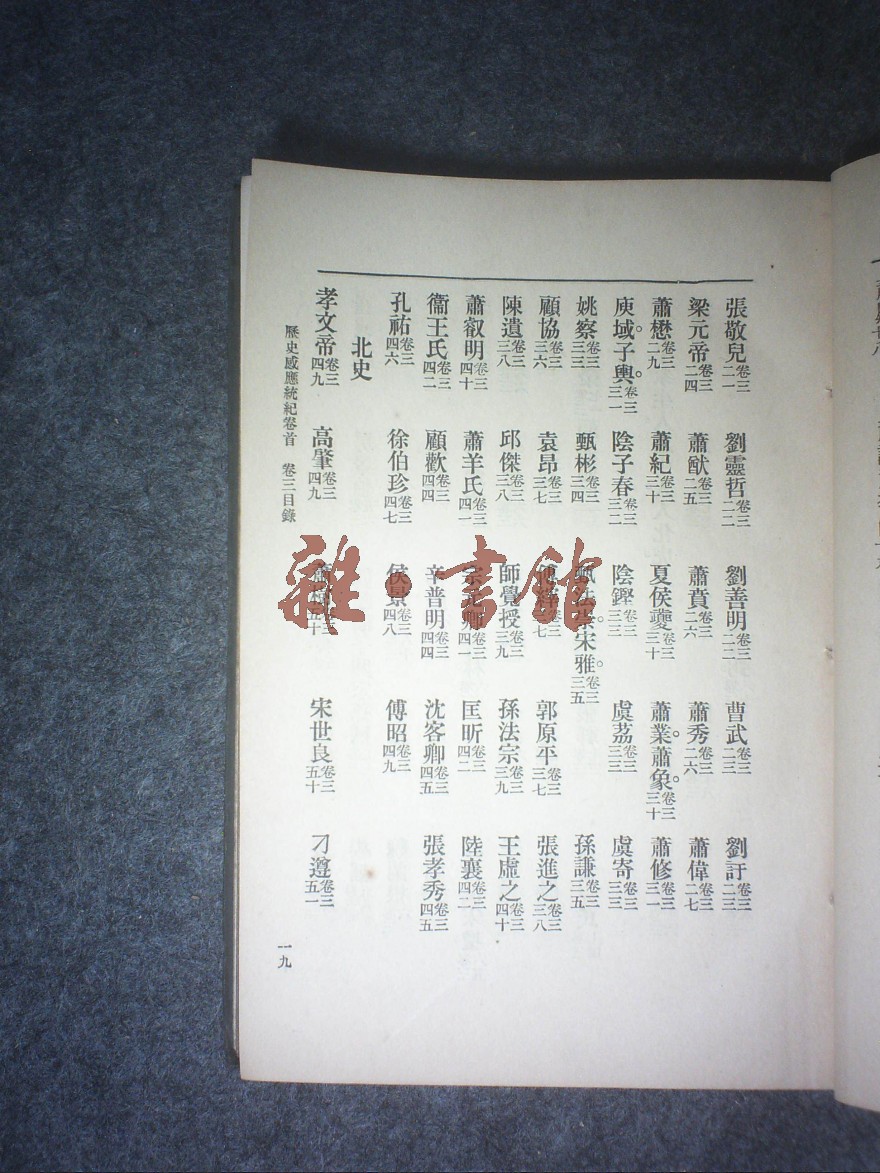 張敬兒卷三二一 劉靈哲卷三二二 劉善明卷三二二 曹武卷三二三 劉訏卷三二三
梁元帝卷三二四 蕭猷卷三二五 蕭賁卷三二六 蕭秀卷三二六 蕭偉卷三二七
蕭懋卷三二九 蕭紀卷三三十 夏侯夔卷三三十 蕭業。蕭象。卷三三十 蕭修卷三三一
庾域。子輿。卷三三一 陰子春卷三三二 陰鏗卷三三三 虞荔卷三三三 虞寄卷三三三
姚察卷三三三 甄彬卷三三四 甄法崇。宋雅。卷三三五 孫謙卷三三五
顧協卷三三六 袁昂卷三三七 卷三三七 郭原平卷三三七 張進之卷三三八
陳遺卷三三八 邱傑卷三三八 師覺授卷三三九 孫法宗卷三三九 王虛之卷三四十
蕭叡明卷三四十 蕭羊氏卷三四一 卷三四一 匡昕卷三四二 陸襄卷三四二
衞王氏卷三四二 顧歡卷三四四 辛普明卷三四四 沈客卿卷三四五 張孝秀卷三四五
孔祐卷三四六 徐伯珍卷三四七 侯景卷三四八 傅昭卷三四九
北史
孝文帝卷三四九 高肇卷三四九 卷三五十 宋世良卷三五十 刁遵卷三五一
歷史感應統紀卷首 卷三目錄
一九
雜·書館